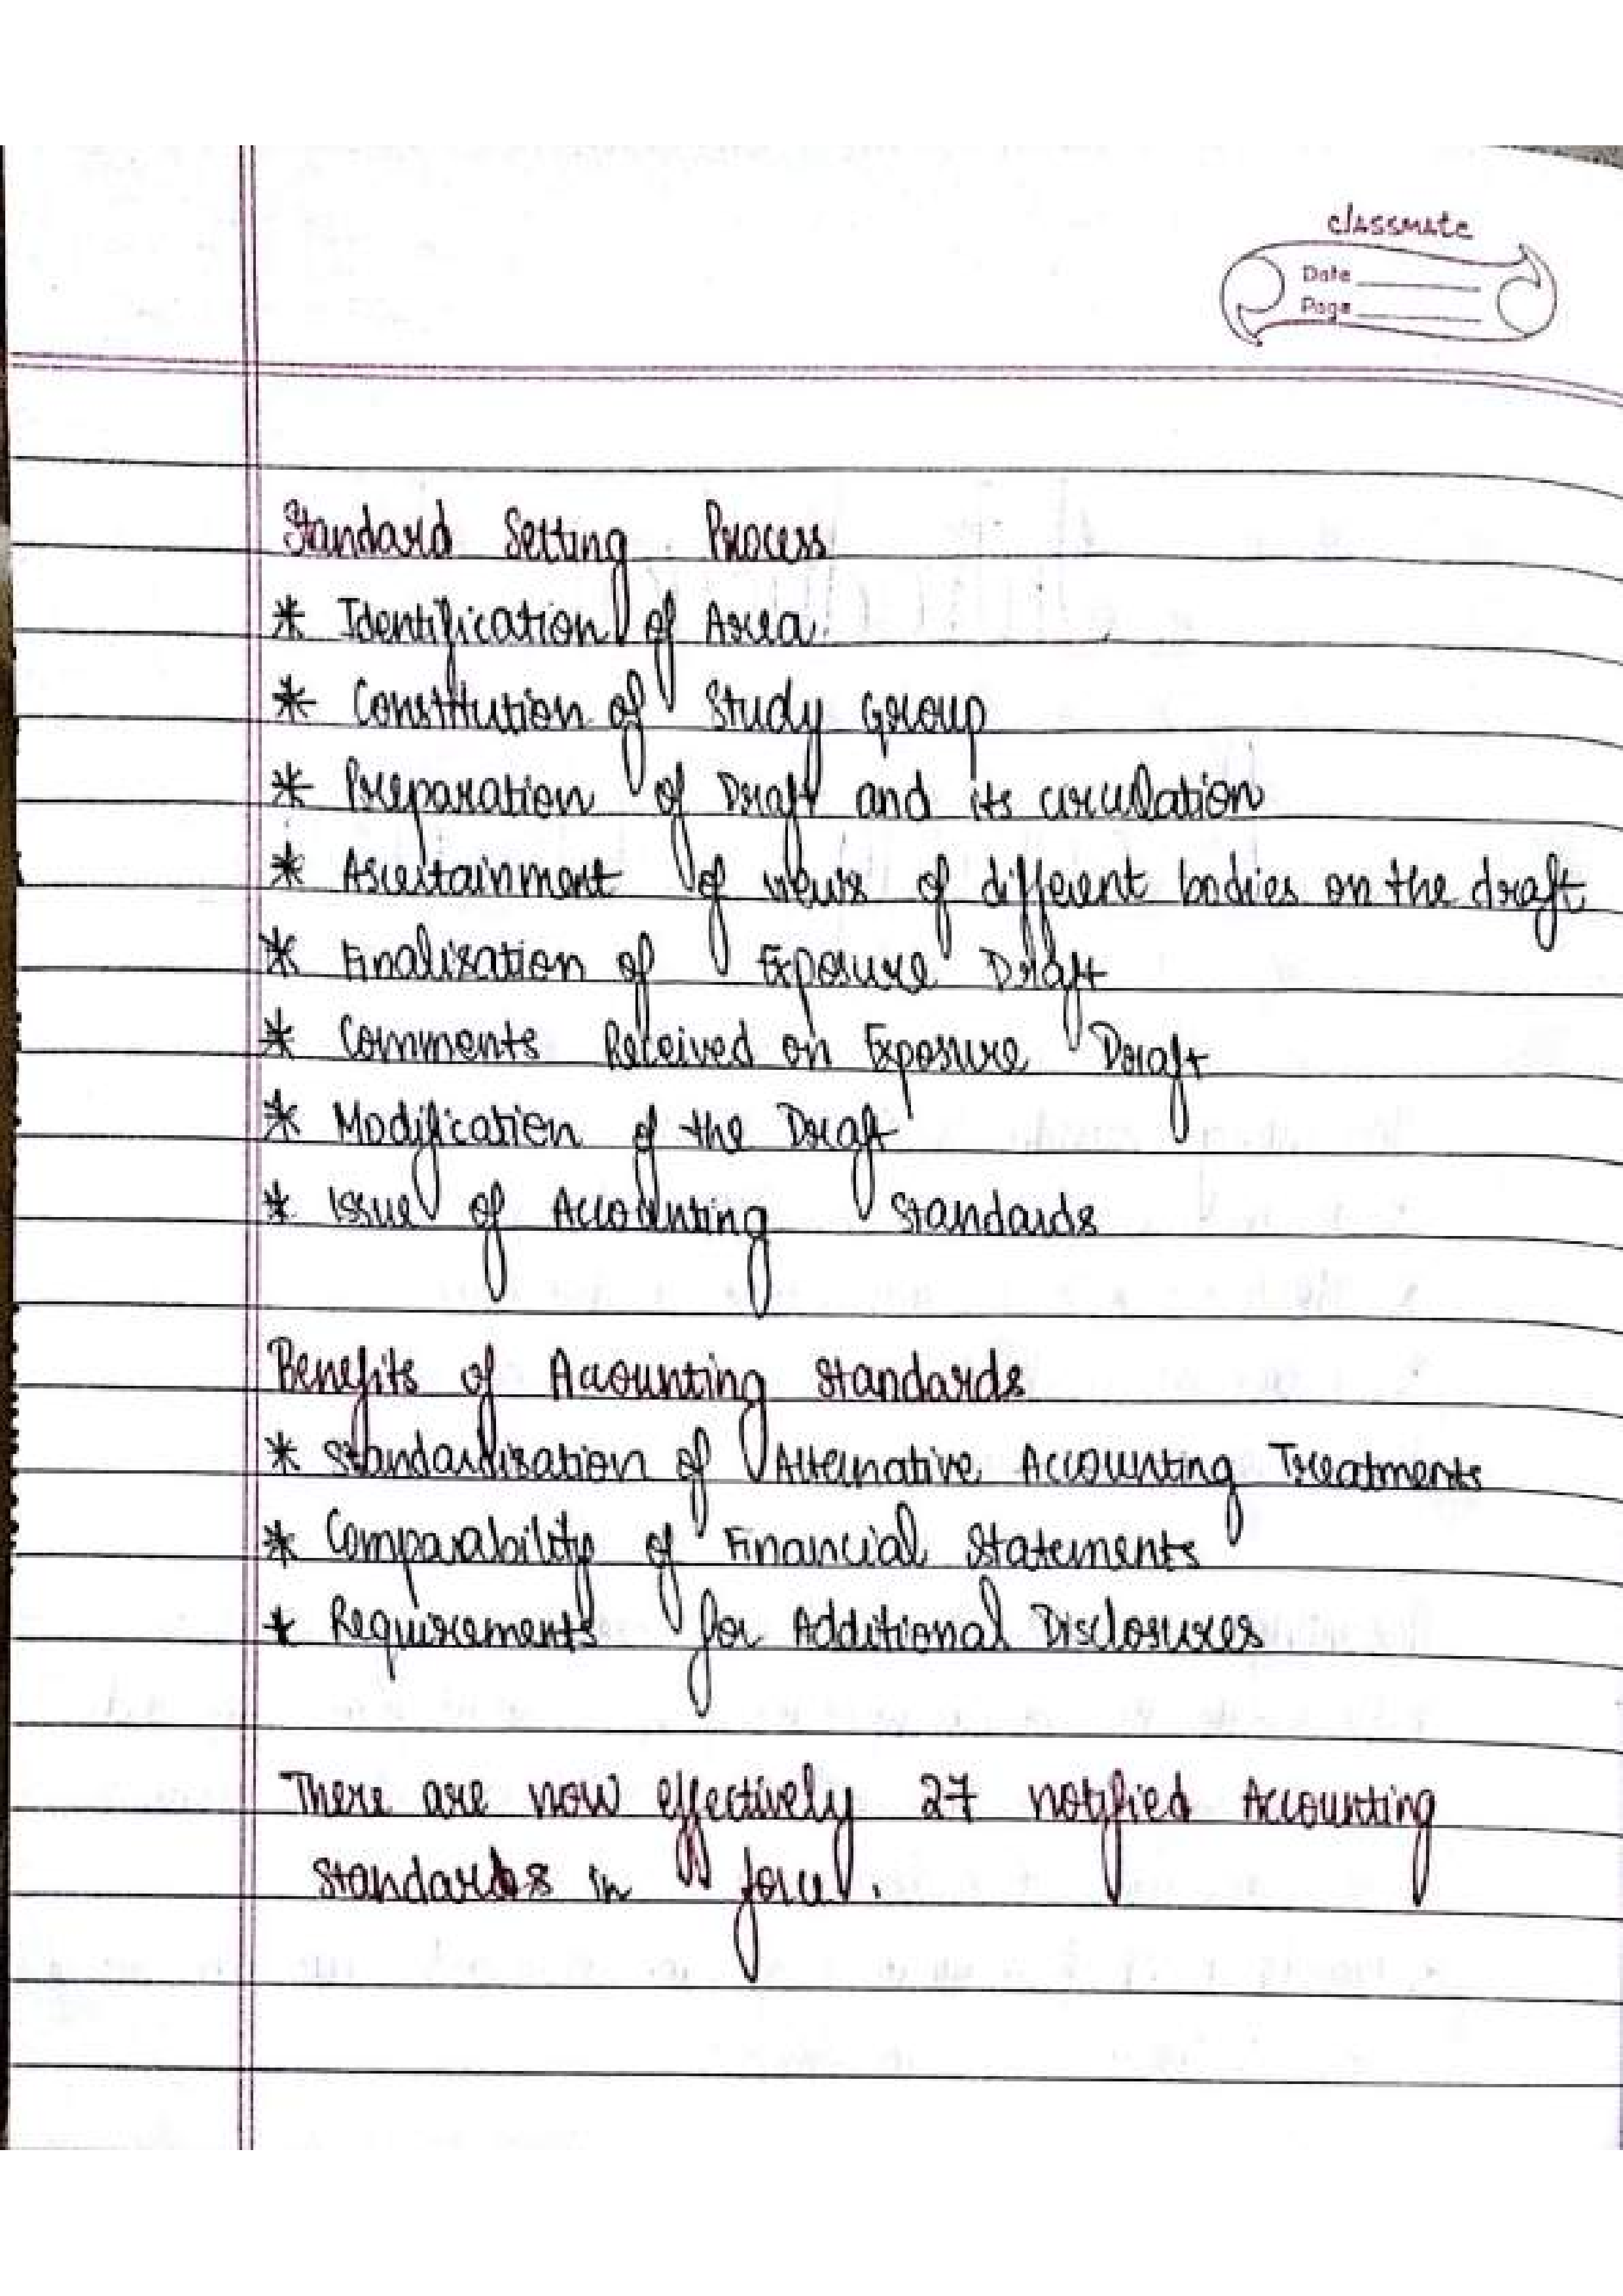 classmate
Date
Page
Standard Setting Process
* Identification of Area
* Constitution of Study Group
* Preparation of Draft and its circulation
* Ascertainment of views of different bodies on the draft
* Finalization of Exposure Draft
* Comments Received on Exposure Draft
* Modification of the Draft
* Issue of Accounting Standards
Benefits of Accounting Standards
* Standardization of Alternative Accounting Treatments
* Comparability of Financial Statements
* Requirements for Additional Disclosures
There are now effectively 27 notified Accounting
Standards in force.